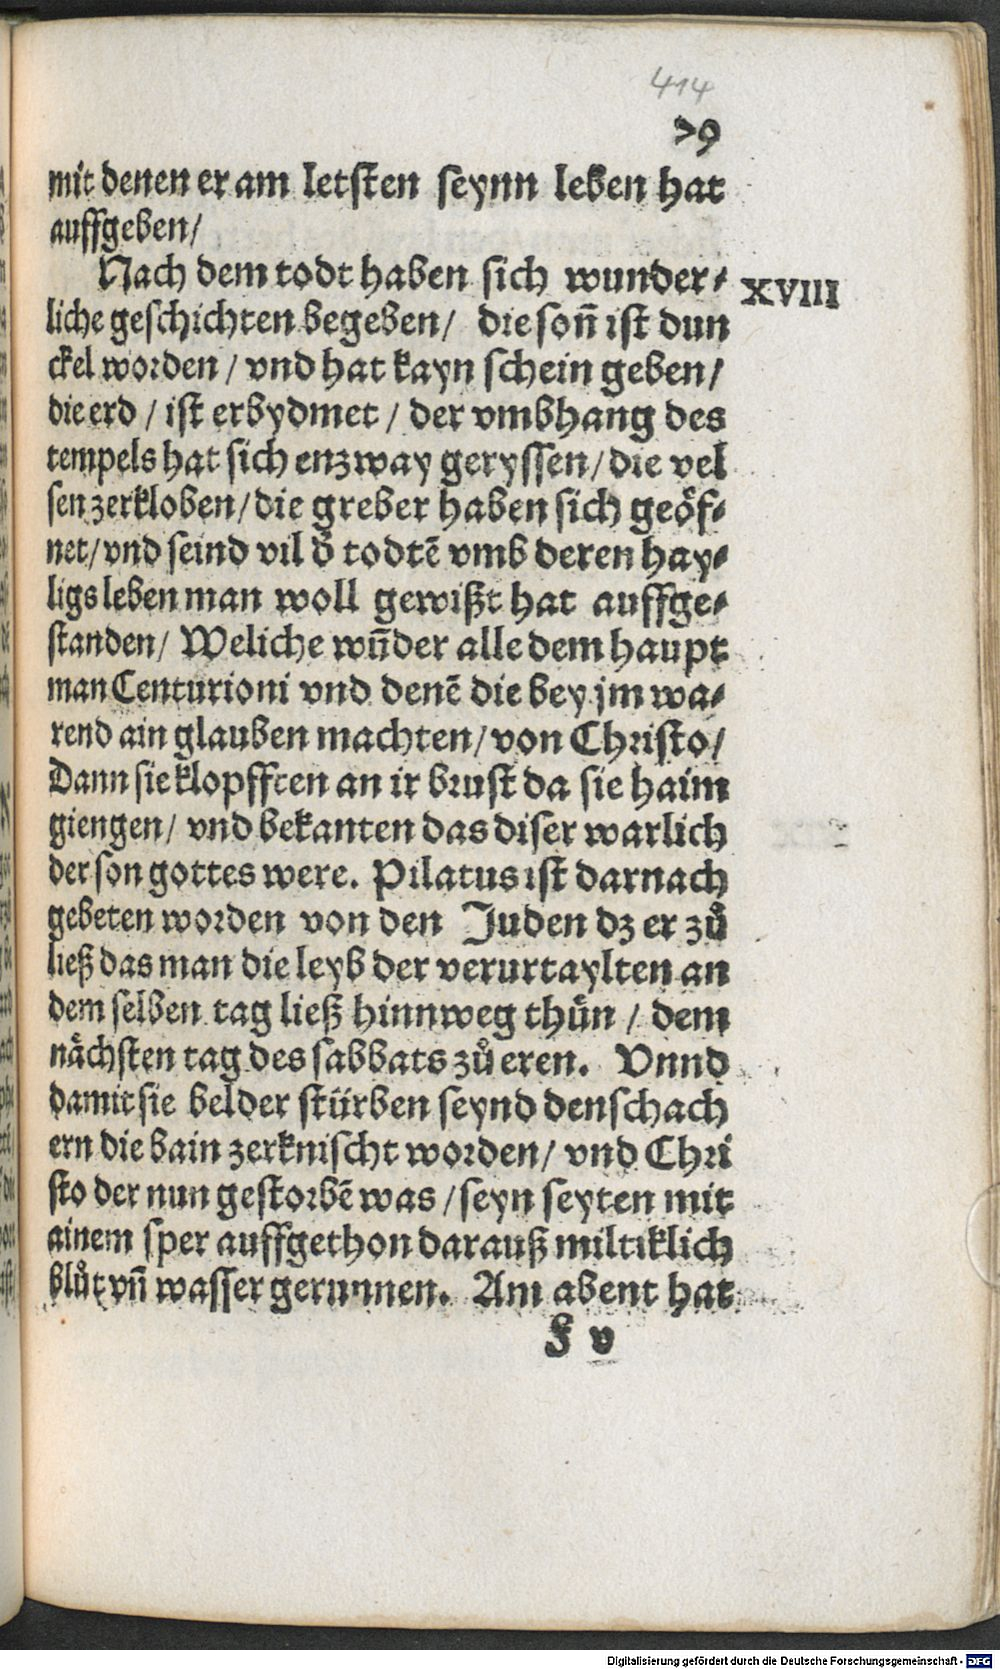 414
79
mit denen er am letsten seynn leben hat
auffgeben/
Nach dem todt haben sich wunder⸗
XVIII
liche geschichten begeben/ die soñ ist dun
ckel worden / vnd hat kayn schein geben/
die erd / ist erbydmet / der vmbhang des
tempels hat sich enzway geryssen/ die vel
sen zerkloben/ die greber haben sich geöf⸗
net/ vnd seind vil d̕ todtē vmb deren hay⸗
ligs leben man woll gewißt hat auffge⸗
standen/ Weliche wun̄der alle dem haupt
man Centurioni vnd denē die bey jm wa⸗
rend ain glauben machten/ von Christo/
Dann sie klopfften an ir brust da sie haim
giengen/ vnd bekanten das diser warlich
der son gottes were. Pilatus ist darnach
gebeten worden von den Juden dz er zuͦ
ließ das man die leyb der verurtaylten an
dem selben tag ließ hinnweg thuͤn / dem
naͤchsten tag des sabbats zuͦ eren. Vnnd
damit sie belder stürben seynd den schach
ern die bain zerknischt worden/ vnd Chri
sto der nun gestorbē was / seyn seyten mit
ainem sper auffgethon darauß miltiklich
bluͦt vñ wasser gerunnen. Am abent hat
F v
Digitalisierung gefördert durch die Deutsche Forschungsgemeinschaft - DFG